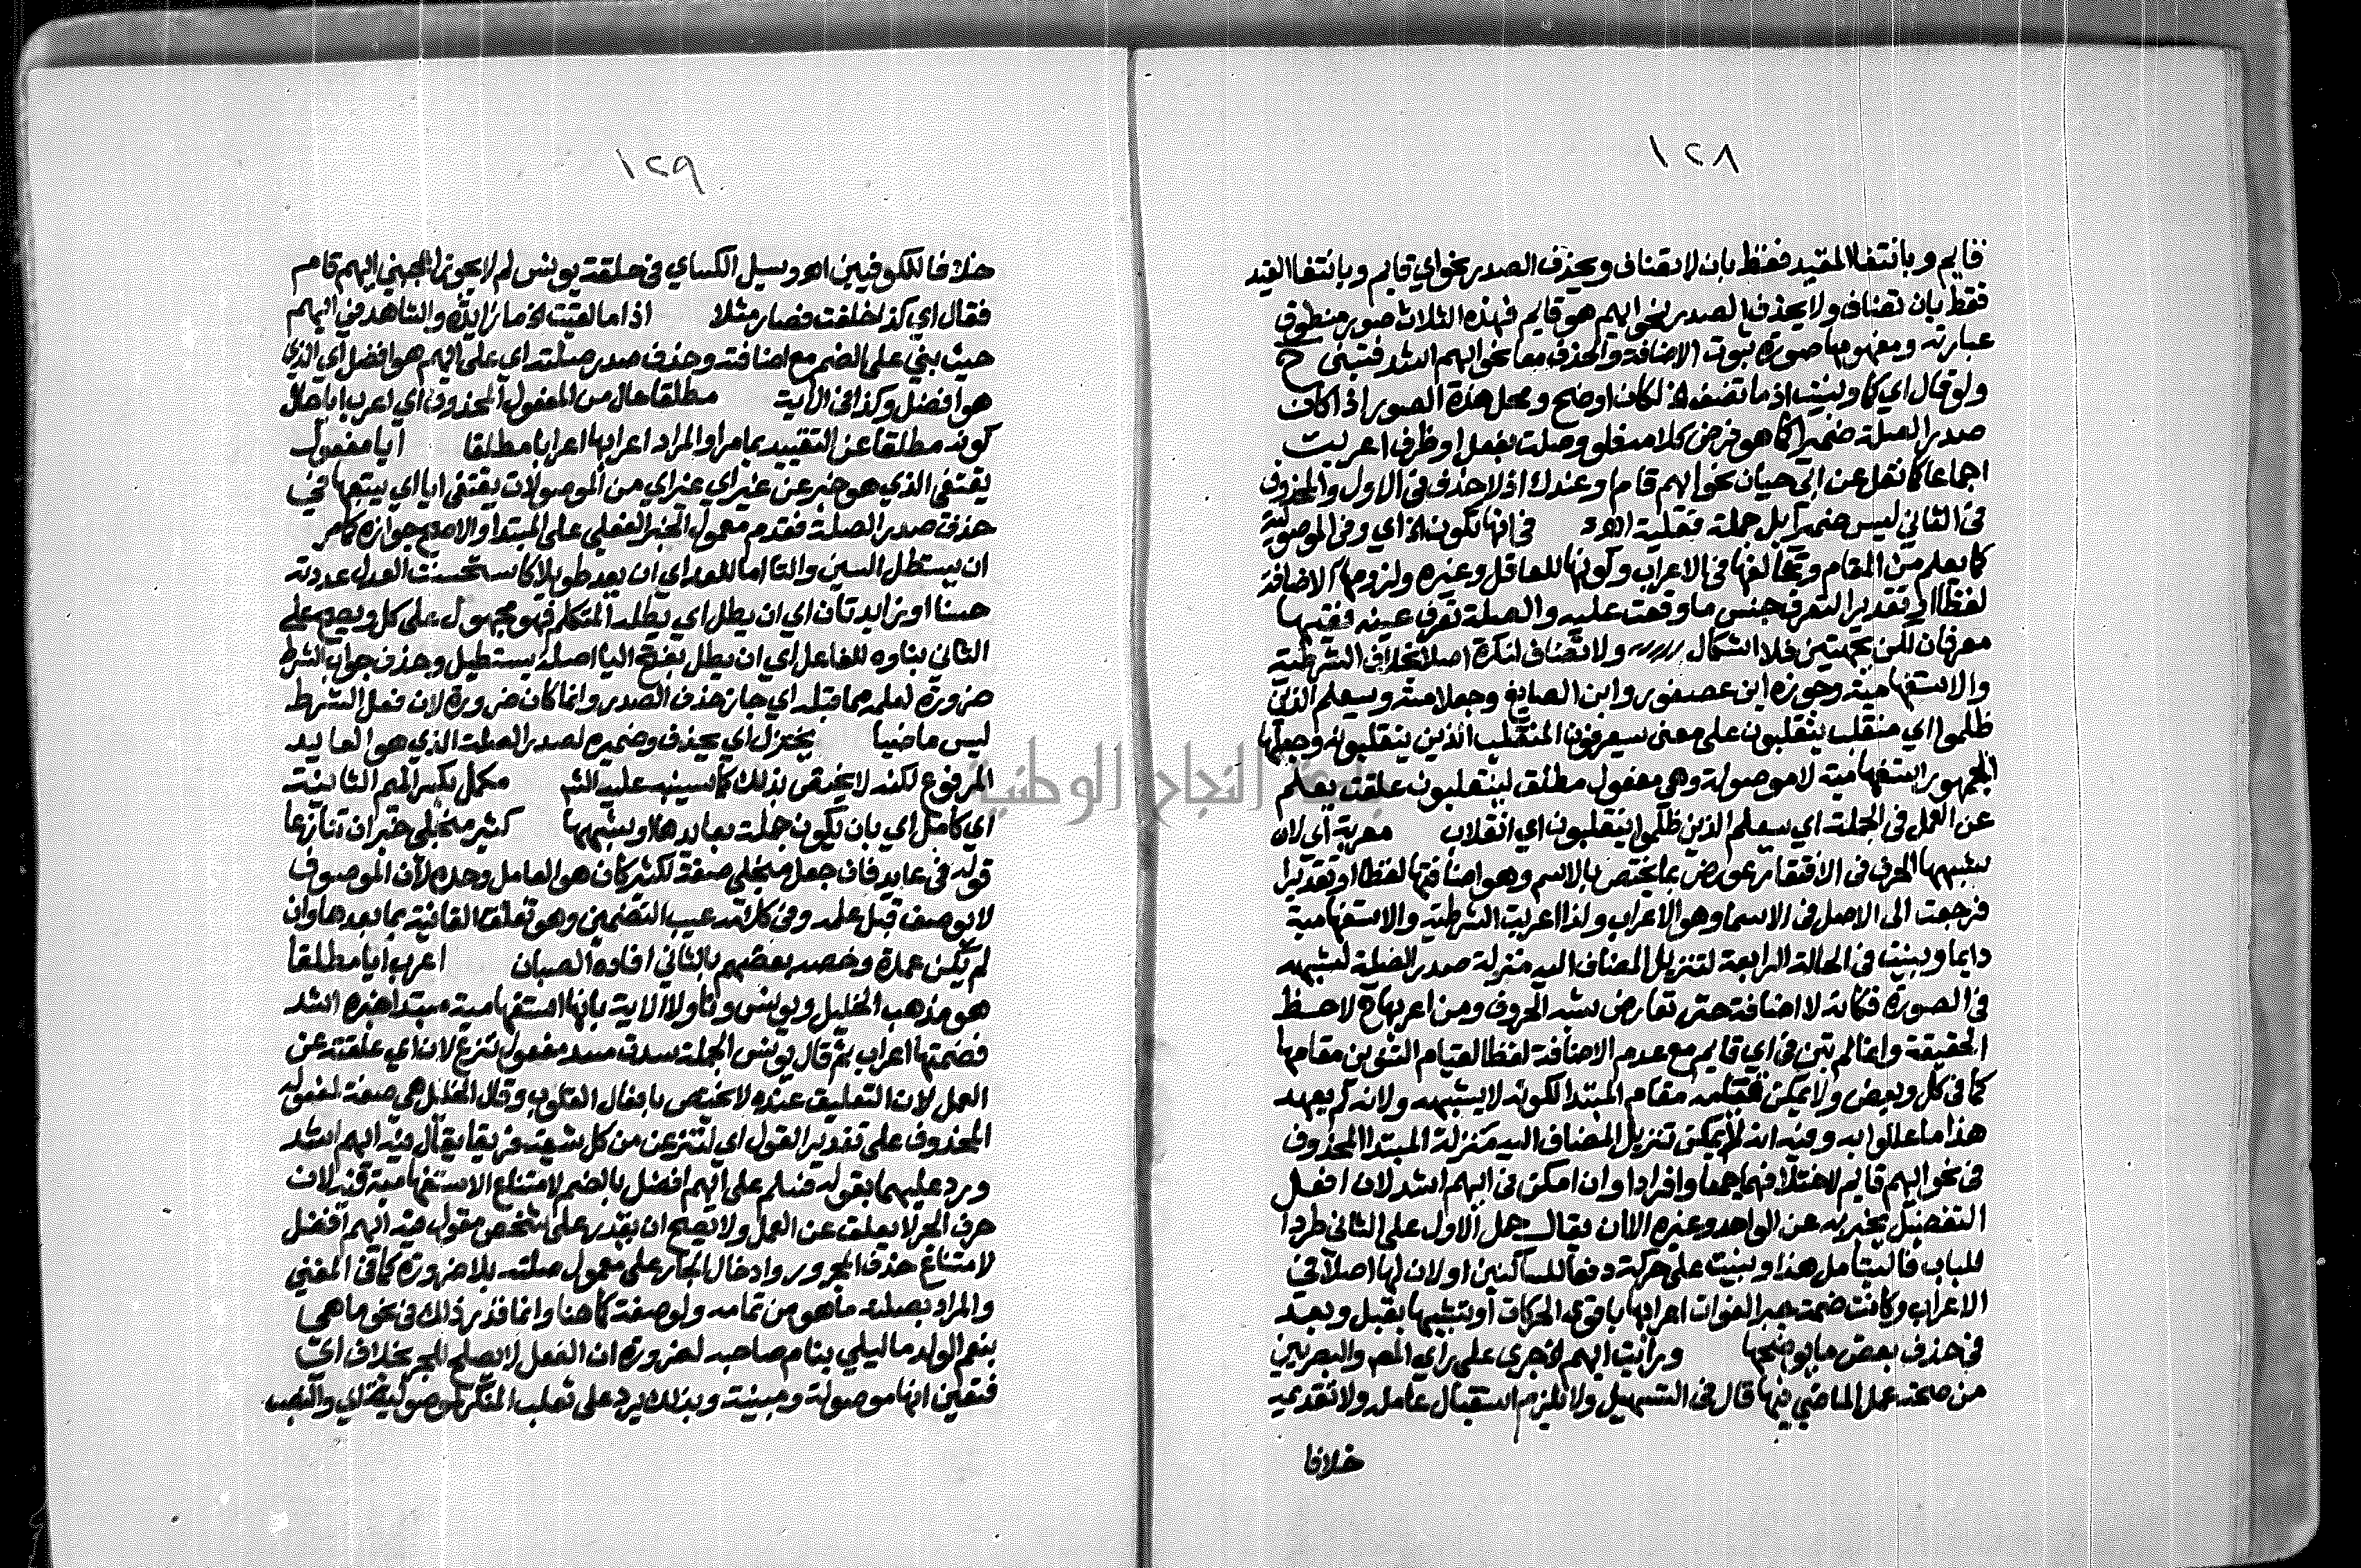 ١٢٨
قايم وبانتفا المقيد فقط بان لا تضاف ويحذف الصدر نحو اي قايم وبانتفا القيد
فقط بان تضاف ولا يحذف الصدر نحو ايهم هو قايم فهذه الثلاث صور منطوق
عبارته ومفهومها صورة ثبوت الاضافة والحذف معا نحو ايهم اشد فتبنى ح
ولو قال اي كما وبنيت اذ ما تضف الخ لكان اوضح ومحل هذه الصور اذا كان
صدر الصلة ضميرا كما هو فرض كلامه فلو وصلت بفعل او ظرف اعربت
اجماعا كما نقل عن ابي حيان نحو ايهم قام وعندك اذ لا حذف في الاول والمحذوف
في الثاني ليس ضميرا بل جملة فعلية اهـ في انها تكون الخ اي وفي الموصولية
كما يعلم من المقام وتخالفها في الاعراب وكونها للعاقل وغيره ولزومها الاضافة
لفظا او تقديرا لتعرف جنس ما وقعت عليه والصلة تعرف عينه ففيها
معرفان لكن بجهتين فلا اشكال ولا تضاف لنكرة اصلا بخلاف الشرطية
والاستفهامية وجوزه ابن عصفور وابن الصايغ وجعلا منه وسيعلم الذين
ظلموا اي منقلب ينقلبون على معنى سيعرفون المنقلب الذين ينقلبونه وجعلها
الجمهور استفهامية لا موصولة وهي مفعول مطلق لينقلبون علقت يعلم
عن العمل في الجملة اي سيعلم الذين ظلموا ينقلبون اي انقلاب معربة اي لان
شبهها الحرف في الافتقار عورض بما يختص بالاسم وهو اضافتها لفظا او تقديرا
فرجعت الى الاصل في الاسما وهو الاعراب ولذا اعربت الشرطية والاستفهامية
دايما وبنيت في الحالة الرابعة لتنزيل المضاف اليه منزلة صدر الصلة لشبهه
في الصورة فكانه لا اضافة حتى تعارض شبه الحروف ومن اعربها ح لاحظ
الحقيقة وانما لم تبن في اي قايم مع عدم الاضافة لفظا لقيام التنوين مقامها
كما في كل وبعض ولا يمكن قيامه مقام المبتدا لكونه لا يشبهه ولانه لم يعهد
هذا ما عللوا به وفيه انه لا يمكن تنزيل المضاف اليه منزلة المبتدا المحذوف
في نحو ايهم قايم لاختلافهما جمعا وافرادا وان امكن في ايهم اشد لان افعل
التفضيل يخبر به عن الواحد وغيره الا ان يقال حمل الاول على الثاني طردا
للباب فاليتامل هذا وبنيت على حركة دفعا للساكنين او لان لها اصلا في
الاعراب وكانت ضمة جبرا لفوات اعرابها باقوى الحركات او لتشبيهها بقبل وبعد
في حذف بعض ما يوضحها ورايت ايهم الخ جرى على راي المص والبصريين
من صحة عمل الماضي فيها قال في التسهيل ولا يلزم استقبال عامله ولا تقديمه
خلافا
١٢٩
خلافا للكوفيين اهـ وسيل الكساي في حلقة يونس لم لا يجوز اعجبني ايهم قام
فقال اي كذا خلقت فصار مثلا اذا ما لقيت الخ ما زايدة والشاهد في ايهم
حيث بني على الضم مع اضافته وحذف صدر صلته اي على ايهم هو افضل اي الذي
هو افضل وكذا في الاية مطلقا حال من المفعول المحذوف اي اعرب ايا حال
كونه مطلقا عن التقييد بما مر او المراد اعرابها اعرابا مطلقا ايا مفعول
يقتفي الذي هو خبر عن غير اي غير اي من الموصولات يقتفي ايا اي يتبعها في
حذف صدر الصلة فقدم معمول الخبر الفعلي على المبتدا والاصح جوازه كما مر
ان يستطل السين والتا اما للعد اي ان يعد طويلا كاستحسنت العدل عددته
حسنا او زايدتان اي ان يطل اي يطله المتكلم فهو مجهول على كل ويصح على
الثاني بناوه للفاعل اي ان يطل بفتح اليا اصله يستطيل وحذف جواب الشرط
ضرورة لعلمه مما قبله اي جاز حذف الصدر وانما كان ضرورة لان فعل الشرط
ليس ماضيا يختزل اي يحذف وضميره لصدر الصلة الذي هو العايد
المرفوع لكنه لا يختص بذلك كما سينبه عليه الش مكمل بكسر الميم الثانية
اي كامل اي بان يكون جملة بعايدها او شبهها كثير منجلي خبران تنازعا
قوله في عايد فان جعل منجلي صفة لكثير كان هو العامل وحده لان الموصوف
لا يوصف قبل عمله وفي كلامه عيب التضمين وهو تعلق القافية بما بعدها وان
لم يكن عمدة وخصه بعضهم بالثاني افاده الصبان اعرب ايا مطلقا
هو مذهب الخليل ويونس وتاولا الاية بانها استفهامية مبتدا خبره اشد
فضمتها اعراب ثم قال يونس الجملة سدت مسد مفعول ننزع لان اي علقته عن
العمل لان التعليق عنده لا يختص بافعال القلوب وقال الخليل هي صفة لمفعوله
المحذوف على تقدير القول اي لننزعن من كل شيعة فريقا يقال فيه ايهم اشد
ورد عليهما بقوله فسلم على ايهم افضل بالضم لامتناع الاستفهامية فيه لان
حرف الجر لا يعلق عن العمل ولا يصح ان يقدر على شخص مقول فيه ايهم افضل
لامتناع حذف المجرور وادخال الجار على معمول صلته بلا ضرورة كما في المغني
والمراد بصلته ما هو من تمامه ولو صفة كما هنا وانما قدر ذلك في نحو ما هي
بنعم الولد ما ليلي بنام صاحبه لضرورة ان الفعل لا يصلح للجر بخلاف اي
فتعين انها موصولة ومبنية وبذلك يرد على ثعلب المنكر لموصولية اي والنصب